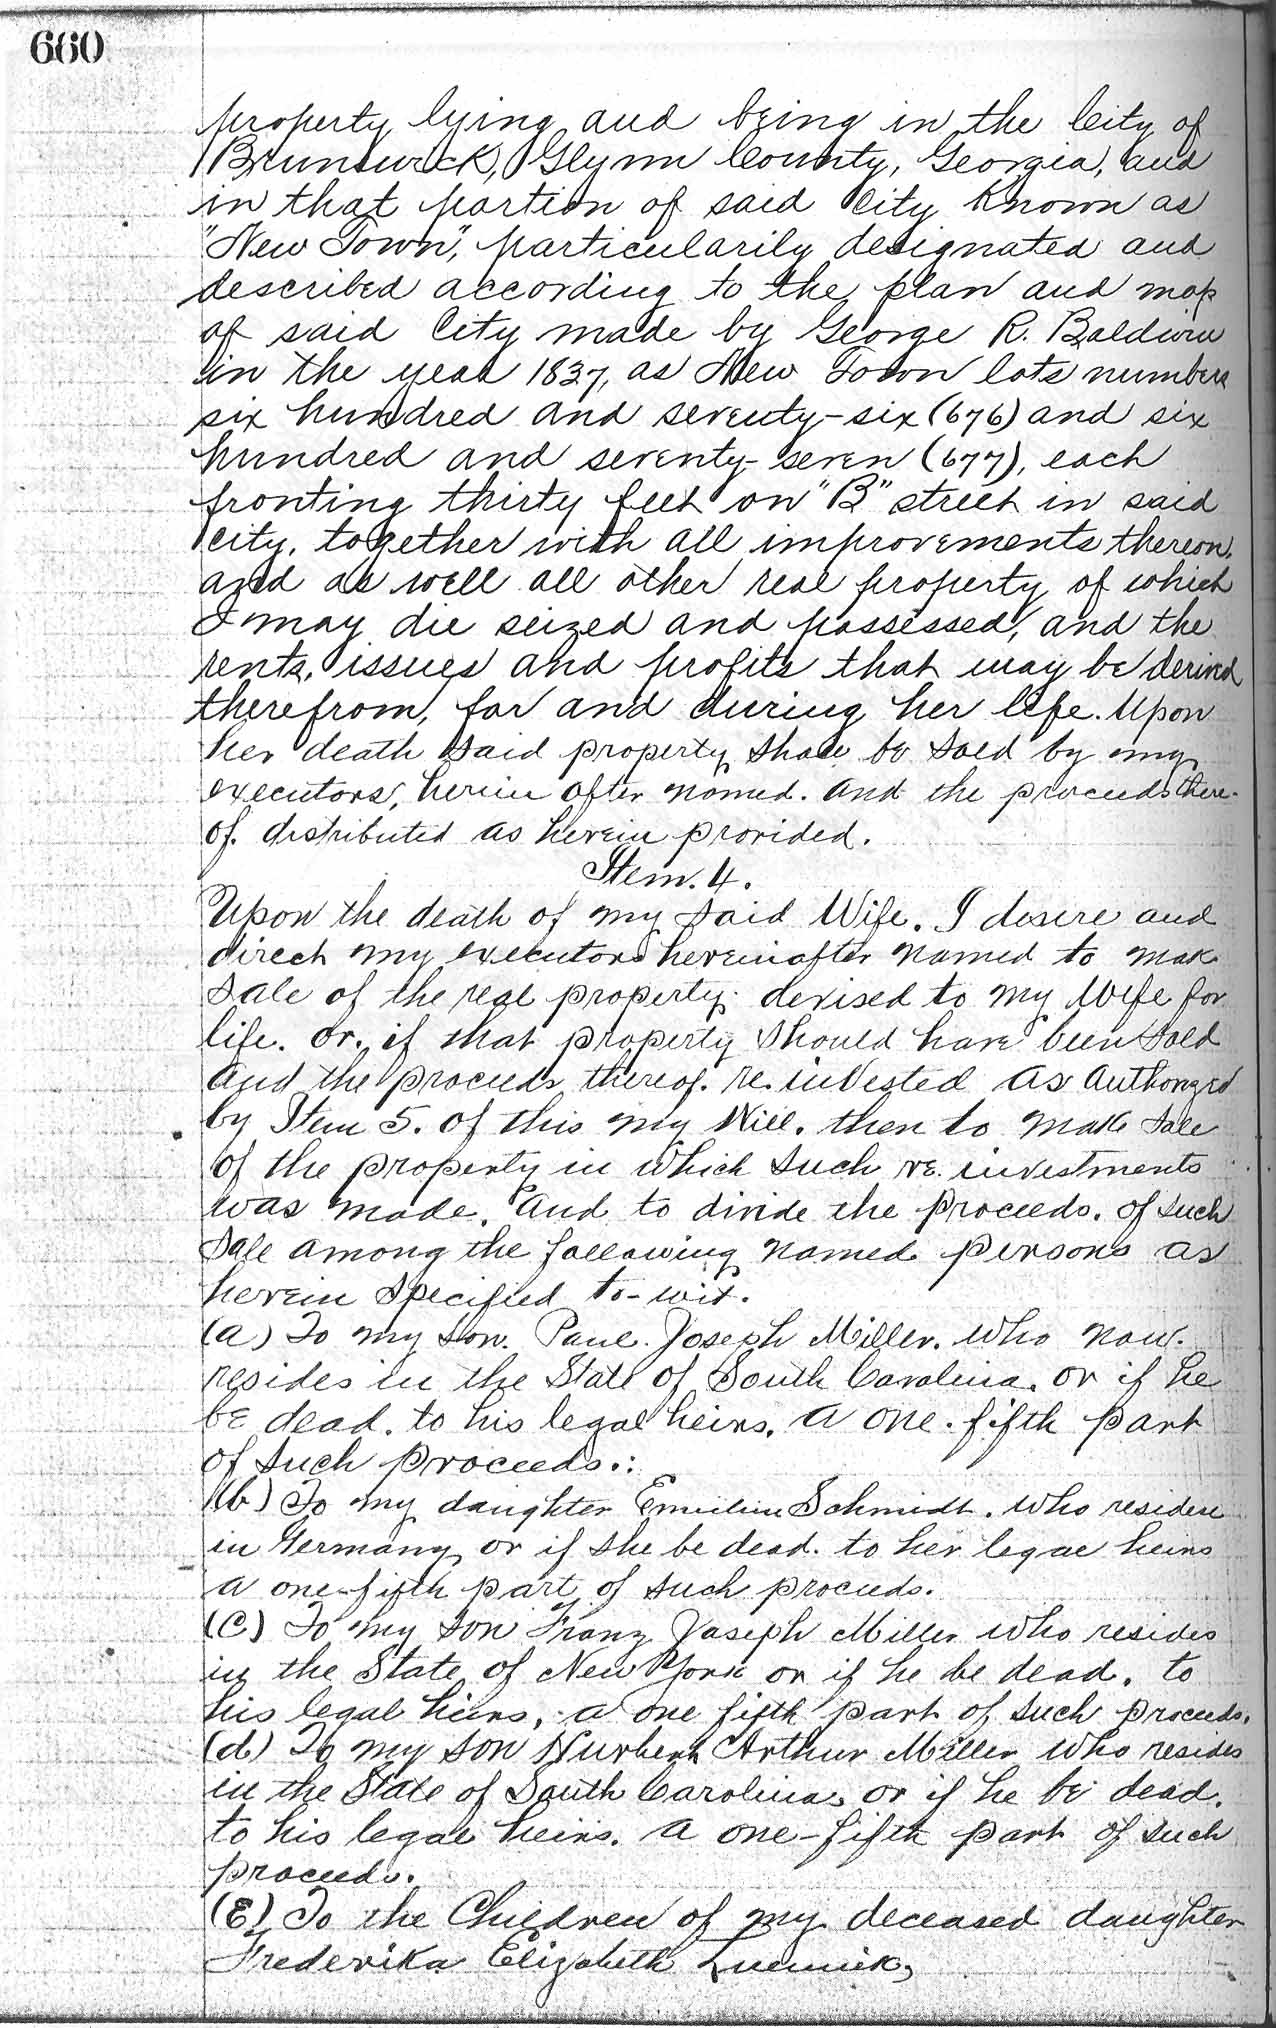 660
property lying and being in the City of
Brunswick, Glynn County, Georgia, and
in that portion of said City Known as
"New Town", particularily designated and
described according to the plan and map
of said City made by George R. Baldwin
in the year 1837, as New Town lots numbers
six hundred and seventy-six (676) and six
hundred and seventy-seven (677), each
fronting thirty feet on "B" street in said
City, together with all improvements thereon,
and as well all other real property of which
I may die seized and possessed, and the
rents, issues and profits that may be derived
therefrom, for and during her life. Upon
her death said property shall be sold by my
executors, herein after named. and the proceeds there-
of. distributed as herein provided.
Item. 4.
Upon the death of my said Wife. I desire and
direct my executors hereinafter named to make
sale of the real property devised to my Wife for
life. or. if that property should have been sold
and the proceeds thereof. re.invested as Authorized
by Item 5. of this my Will. then to make sale
of the property in which such re.investments
was made. And to divide the proceeds. of such
sale among the following named persons as
herein specified to-wit.
(a) To my son. Paul Joseph Miller. who now.
resides in the State of South Carolina. or if he
be dead. to his legal heirs. a one-fifth part
of such proceeds.:
(b) To my daughter Emilie Schmidt. who resides
in Germany or if she be dead. to her legal heirs
a one-fifth part of such proceeds.
(c) To my son Franz Joseph Miller who resides
in the State of New York or if he be dead. to
his legal heirs, a one fifth part of such proceeds.
(d) To my son Arthur Miller who resides
in the State of South Carolina, or if he be dead.
to his legal heirs. a one-fifth part of such
proceeds.
(E) To the Children of my deceased daughter
Frederika Elizabeth